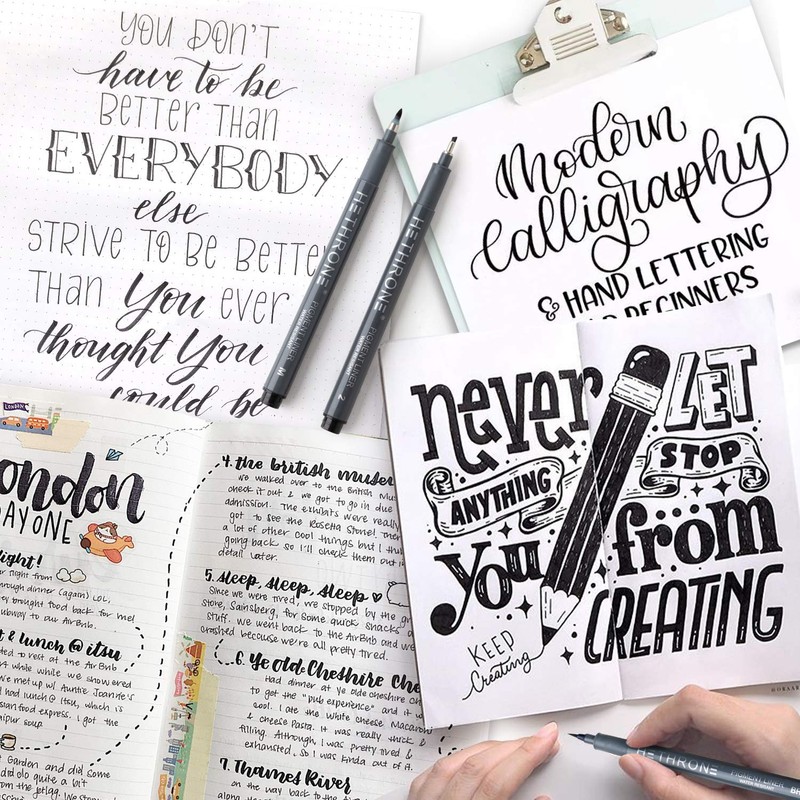 YOU DON'T
have to be
Better Than
EVERYBODY
else
STRIVE TO BE BETTE
THAN You ever
thought You
could be
HETHRONE
PIGMENT LINER
M
HETHRONE
PIGMENT LINER
2
Modern
Calligraphy
& HAND LETTERING
BEGINNERS
LONDON
ondon
DAY ONE
light!
r flight from
hrough dinner (again) LOL,
ey brought food back for me!
ubway to our AirBnb.
t & lunch @ itsu
ted to rest at the AirBnb
while while we showered
we met up w/ Auntie Joanie's
had lunch @ itsu, which is
sian food express. I got the
soup
Garden and did some
did do quite a bit
from the jetlag. We stop
4. the british museu
we walked over to the British Mus
check it out & we got to go in due
admission. The exhibits were really
got to see the Rosetta Stone! Ther
a lot of other cool things but I thi
going back so I'll check them out i
detail later.
5. sleep, sleep, sleep ♥
Since we were tired, we stopped by the gr
store, Sainsberg, for some quick snacks a
stuff. We went back to the AirBnb and we
crashed because we're all pretty tired.
6. Ye old Cheshire che
Had dinner at ye olde cheshire ch
to get the "pub experience" and it w
cool. I ate the White cheese Macaroni
& cheese Pasta. It was really thick &
filling. Although, I was pretty tired &
exhausted, so I was kinda out of it.
7. Thames River
on the way back to the
along
never
LET
ANYTHING
STOP
you
from
CREATING
KEEP
Creating
HETHRONE
PIGMENT LINER
BR